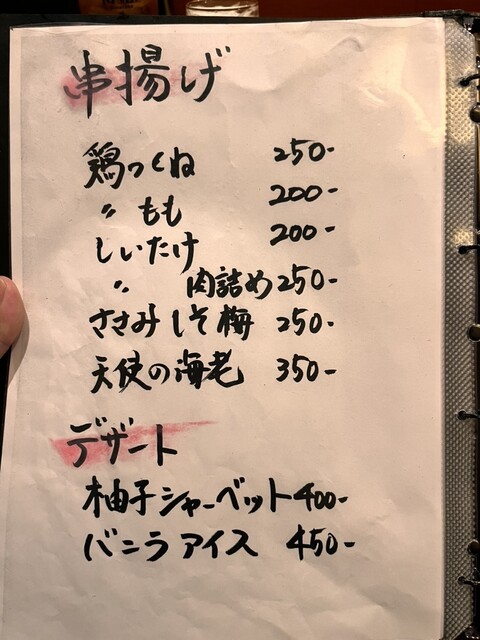 串揚げ
鶏つくね 250-
〃 もも 200-
しいたけ 200-
〃 肉詰め 250-
ささみしそ梅 250-
天使の海老 350-
デザート
柚子シャーベット 400-
バニラアイス 450-